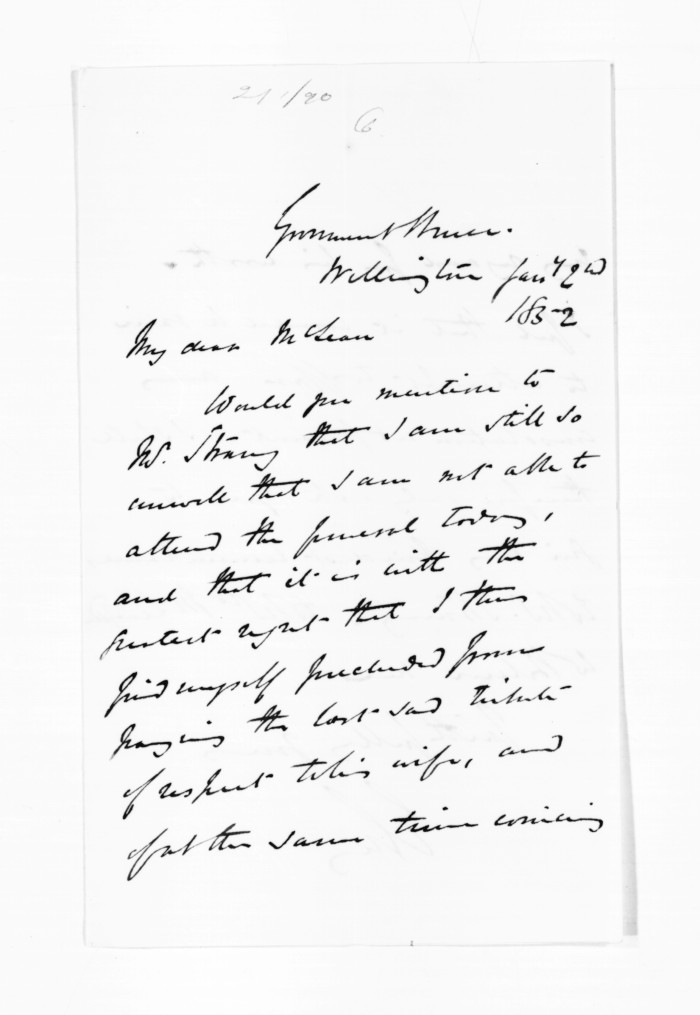 21/1/90
6
Government House.
Wellington Jany 2nd
1852
My dear McLean
Would you mention to
Mr. Strang that I am still so
unwell that I am not able to
attend the funeral today,
and that it is with the
greatest regret that I thus
find myself precluded from
paying the last sad tribute
of respect to his wife, and
of at the same time